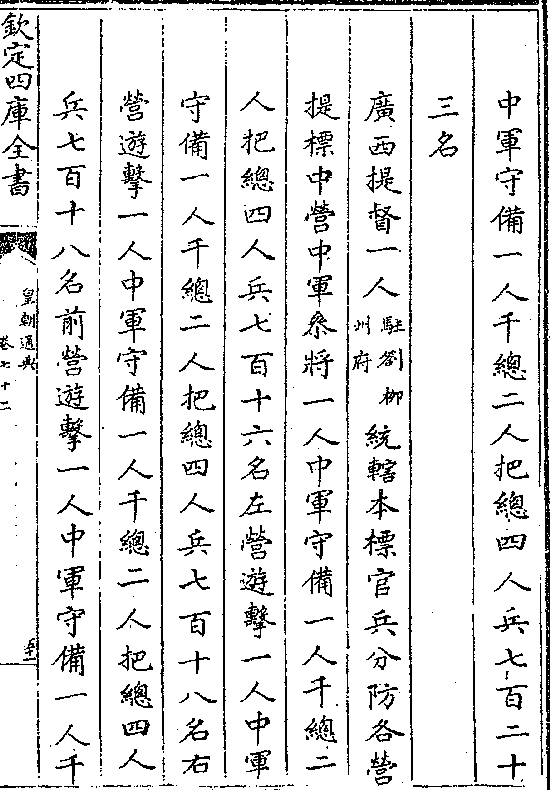 中軍守備一人千總二人把總四人兵七百二十
三名
廣西提督一人駐劄柳州府統轄本標官兵分防各營
提標中營中軍叅將一人中軍守備一人千總二
人把總四人兵七百十六名左營遊擊一人中軍
守備一人千總二人把總四人兵七百十八名右
營遊擊一人中軍守備一人千總二人把總四人
兵七百十八名前營遊擊一人中軍守備一人千
欽定四庫全書
皇朝通典
卷七十二